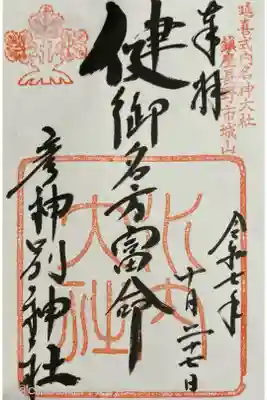 延喜式内名神大社
鎮座長野市城山
奉拝
健御名方富命
彦神別神社
水内大社
令和七年
十月二十七日